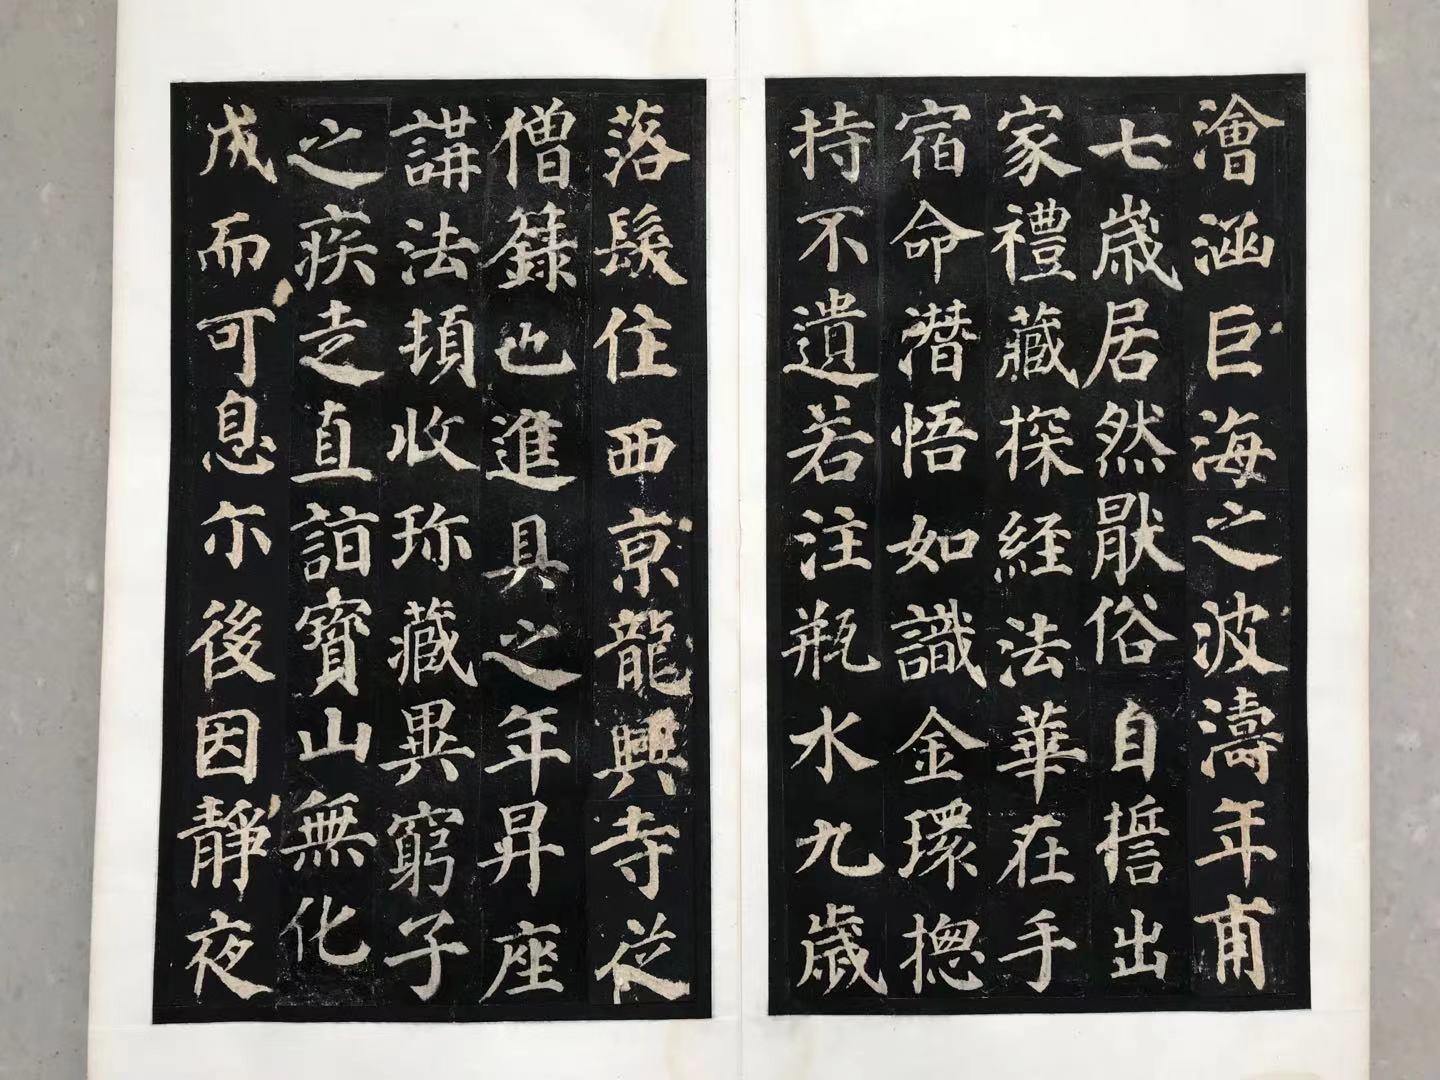 澮涵巨海之波濤年甫
七歲居然猒俗自誓出
家禮藏探經法華在手
宿命潛悟如識金環揔
持不遺若注瓶水九歲
落髮住西亰龍興寺從
僧籙也進具之年昇座
講法頓收珎藏異窮子
之疾走直詣寶山無化
成而可息尒後因靜夜